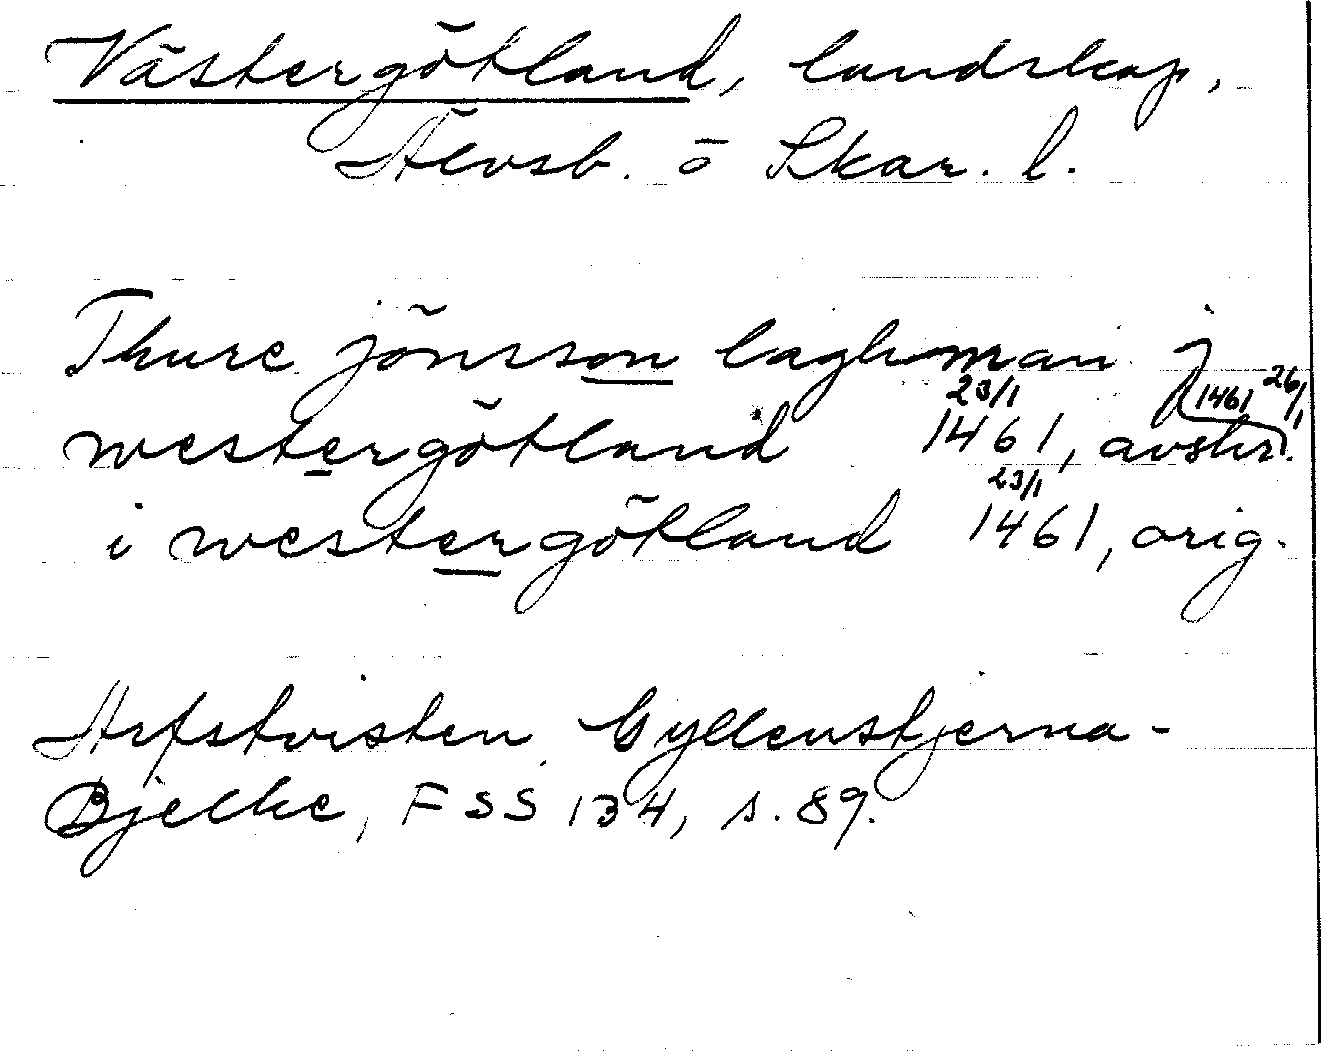 Västergötland, landskap,
Älvsb. o Skar. l.
Thure jönsson laghman j
westergötland 23/1 1461, avskr. 1461 26/1
i westergötland 23/1 1461, orig.
Arfstvisten Gyllenstjerna-
Bjelke, FSS 134, s. 89.